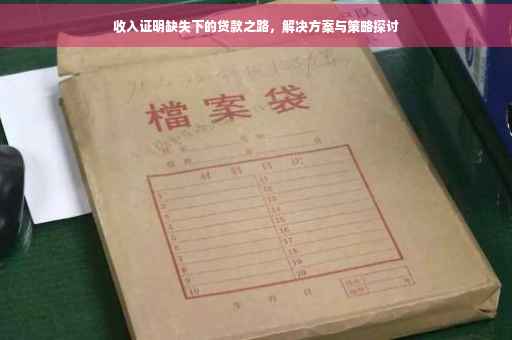 收入证明缺失下的贷款之路，解决方案与策略探讨
檔案袋
材料目次
1 11
2 12
3 13
4 14
5 15
6 16
7 17
8 18
9 19
10 20
年 月 日